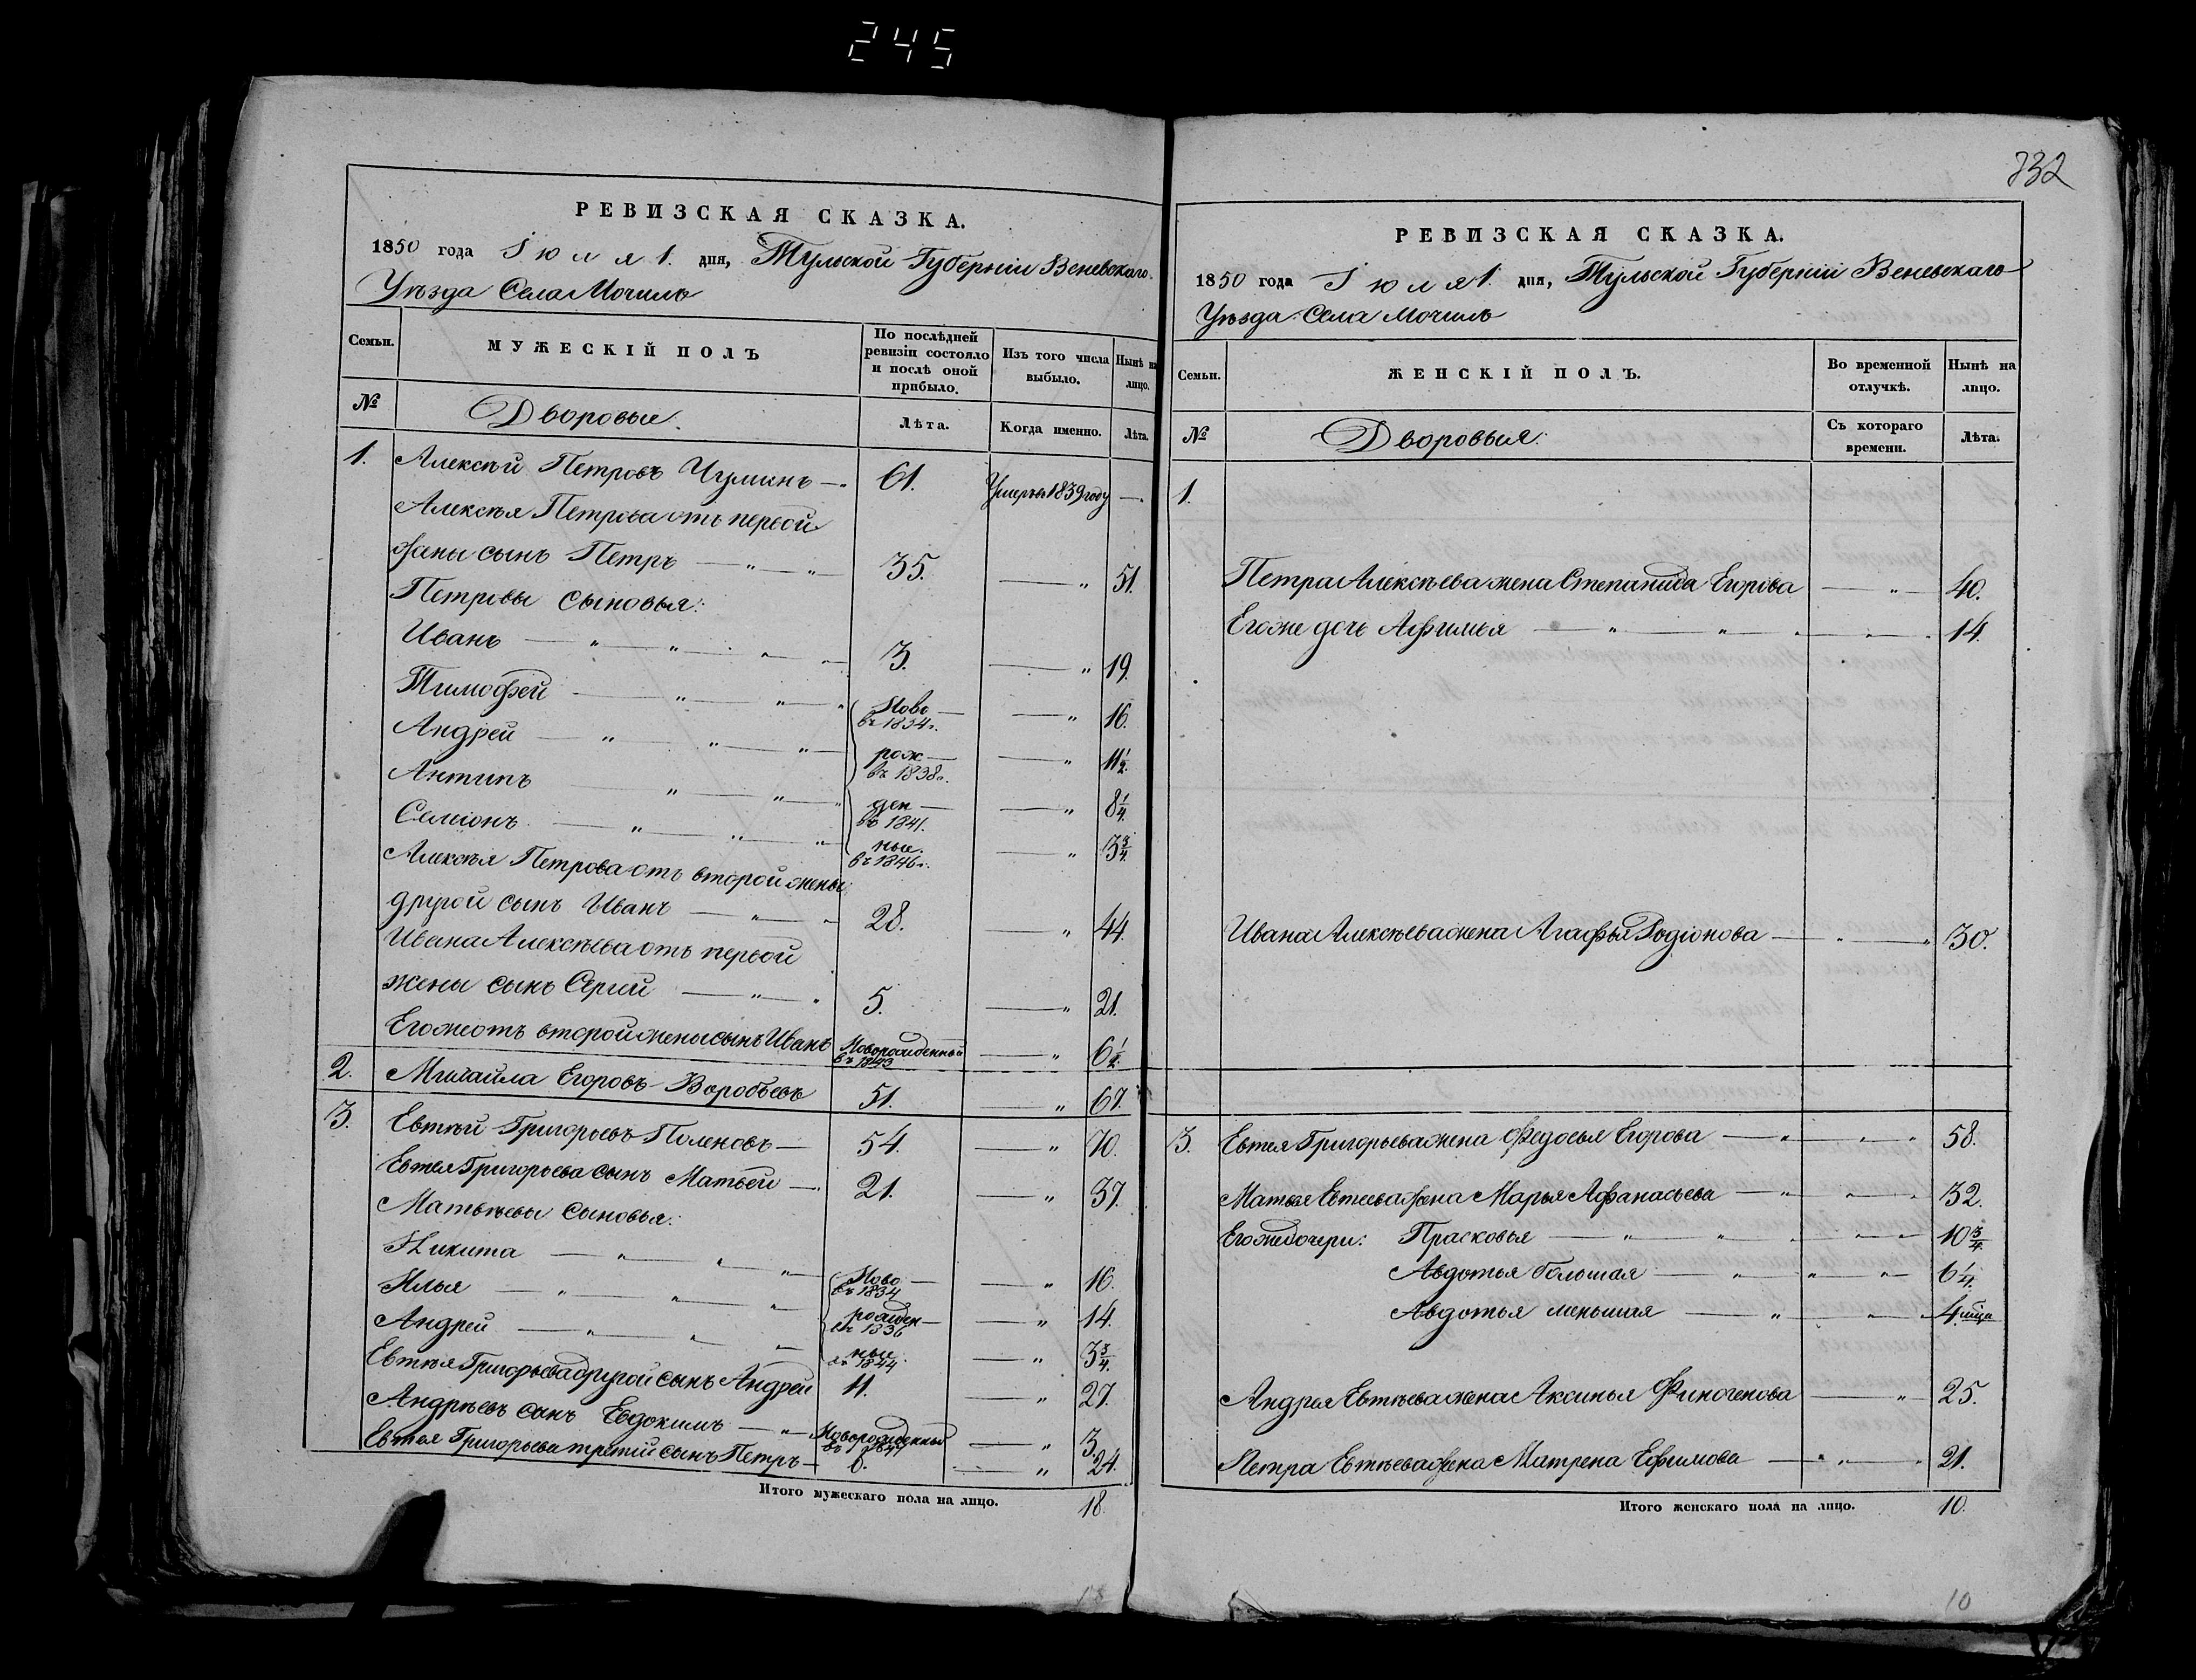 245
РЕВИЗСКАЯ СКАЗКА.
1850 года Іюля 1. дня, Тульской Губерніи Веневскаго
Уѣзда Села Мочилъ
Семьи.
МУЖЕСКІЙ ПОЛЪ
По послѣдней
ревизіи состояло
и послѣ оной
прибыло.
Изъ того числа
выбыло.
Нынѣ на
лицо.
№
Дворовые.
Лѣта.
Когда именно.
Лѣта.
1. Алексѣй Петровъ Чуминъ — 61. Умеръ въ 1839 году —
Алексѣя Петрова отъ первой
жены сынъ Петръ — " — " — 35. — " 51.
Петровы сыновья:
Иванъ — " — " — " — 3. — " 19.
Тимофей — " — " — " Ново — въ 1834г. — " 16.
Андрей — " — " — " — рож — въ 1838г. — " 11½.
Антипъ — " — " — " ден — въ 1841. — " 8¼.
Семіонъ — " — " — " ные. въ 1846г. — " 3¾.
Алексѣя Петрова отъ второй жены
другой сынъ Иванъ — " — 28. — " 44.
Ивана Алексѣева отъ первой
жены сынъ Сергий — " — " 5. — " 21.
Егоже отъ второй жены сынъ Иванъ Новорожденный въ 1843 — " 6½.
2. Михайла Егоровъ Воробьевъ 51. — " 67.
3. Евтѣй Григорьевъ Поленовъ — 54. — " 70.
Евтея Григорьева сынъ Матвей — 21. — " 37.
Матвѣевы сыновья:
Никита — " — " — " — Ново — въ 1834 — " 16.
Илья — " — " — " — рожден — въ 1836 — " 14.
Андрей — " — " — " — ные въ 1844 — " 3¾.
Евтѣя Григорьева другой сынъ Андрей 11. — " 27.
Андрѣевъ сынъ Евдокимъ — " — Новорожденный въ 1847 — " 3.
Евтея Григорьева третій сынъ Петръ — — " 24.
Итого мужескаго пола на лицо. 18.
332
РЕВИЗСКАЯ СКАЗКА.
1850 года Іюля 1. дня, Тульской Губерніи Веневскаго
Уѣзда Села Мочилъ
Семьи.
ЖЕНСКІЙ ПОЛЪ.
Во временной
отлучкѣ.
Нынѣ на
лицо.
№
Дворовыя.
Съ котораго
времени.
Лѣта.
1.
Петра Алексѣева жена Степанида Егорова — " — 40.
Егоже дочь Афимья — " — " — " — " 14.
Ивана Алексѣева жена Агафья Родіонова — " — " 30.
3. Евтея Григорьева жена Федосья Егорова — " — " — " 58.
Матвея Евтеева жена Марья Афанасьева — " — " — " 32.
Егоже дочери: Прасковья — " — " — " — " 10¾.
Авдотья большая — " — " — " — 6¼.
Авдотья меньшая — " — " — " 4 мѣся
Андрея Евтѣева жена Аксинья Финогенова — " — 25.
Петра Евтѣева жена Матрена Ефимова — " — " — " 21.
Итого женскаго пола на лицо. 10.
18
10